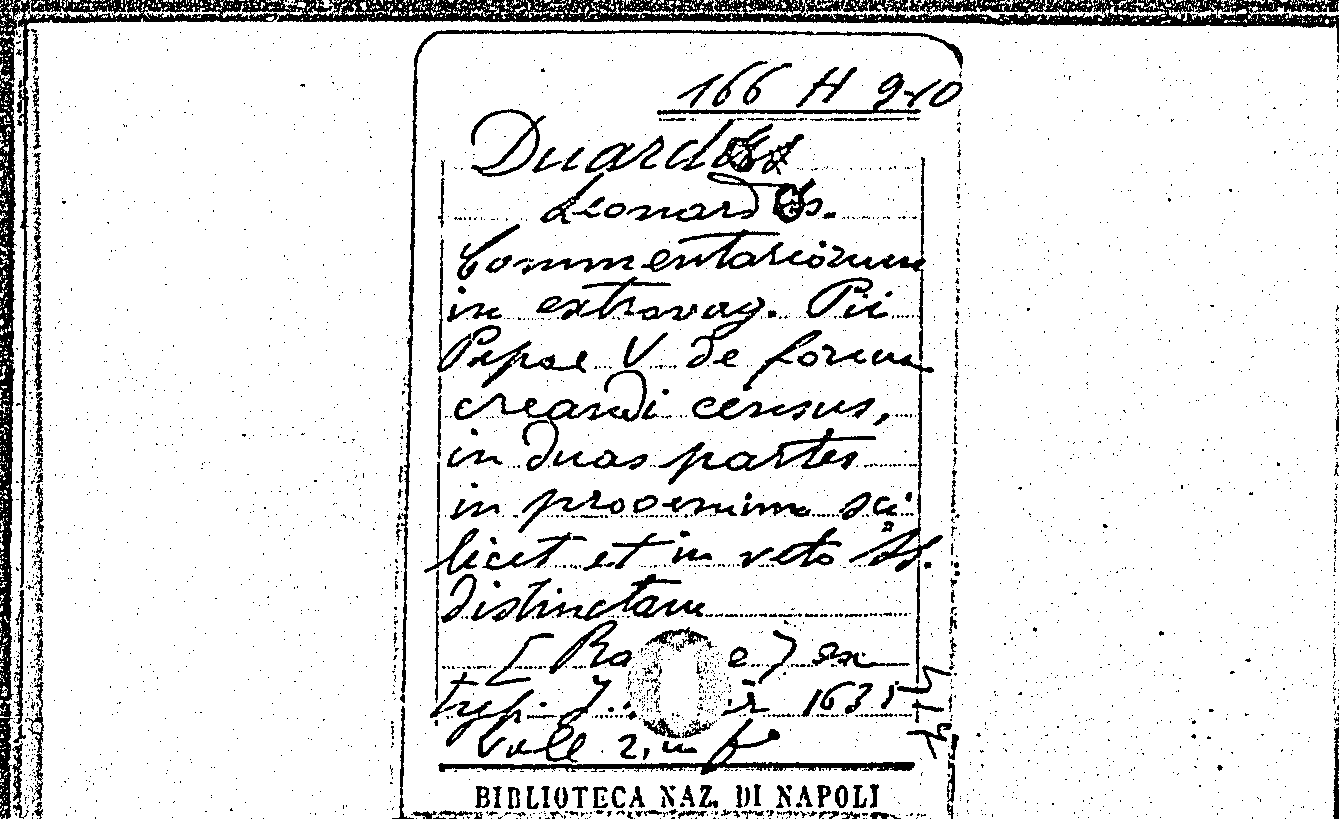 166 H 9-10
Duardus
Leonardus.
Commentariorum
in extravag. Pii
Papae V de forma
creandi census,
in duas partes
in prooemium sci
licet et in veto §§.
distinctam
[ Ro e ] ex
typ. J. 1631
Voll 2, in f°
BIBLIOTECA NAZ. DI NAPOLI